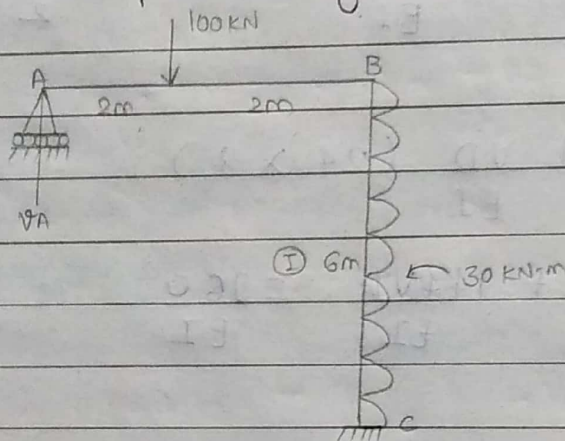 100KN
A
B
2m 2m
VA
I 6m
30 KN-m
C